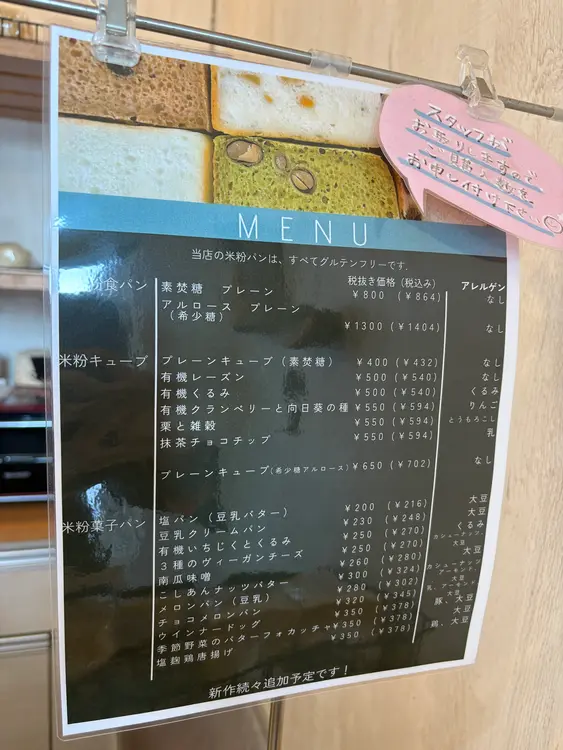 スタッフが
お取りしますので
ご購入物を
お申し付け下さい
MENU
当店の米粉パンは、すべてグルテンフリーです。
税抜き価格（税込み） アレルゲン
食パン 素焚糖 プレーン ￥800 （￥864） なし
アルロース プレーン
（希少糖） ￥1300 （￥1404） なし
米粉キューブ プレーンキューブ（素焚糖） ￥400（￥432） なし
有機レーズン ￥500（￥540） なし
有機くるみ ￥500（￥540） くるみ
有機クランベリーと向日葵の種 ￥550（￥594） りんご
栗と雑穀 ￥550（￥594） とうもろこし
抹茶チョコチップ ￥550（￥594） 乳
プレーンキューブ（希少糖アルロース）￥650（￥702） なし
米粉菓子パン 塩パン（豆乳バター） ￥200 （￥216） 大豆
豆乳クリームパン ￥230 （￥248） 大豆
有機いちじくとくるみ ￥250 （￥270） くるみ
３種のヴィーガンチーズ ￥250 （￥270） カシューナッツ、大豆
南瓜味噌 ￥260 （￥280） 大豆
こしあんナッツバター ￥300 （￥324） カシューナッツ、アーモンド、大豆
メロンパン（豆乳） ￥280 （￥302）
チョコメロンパン ￥320 （￥345） 乳、アーモンド、大豆
ウインナードッグ ￥350 （￥378） 豚、大豆
季節野菜のバターフォカッチャ￥350 （￥378） 大豆
塩麹鶏唐揚げ ￥350 （￥378） 鶏、大豆
新作続々追加予定です！